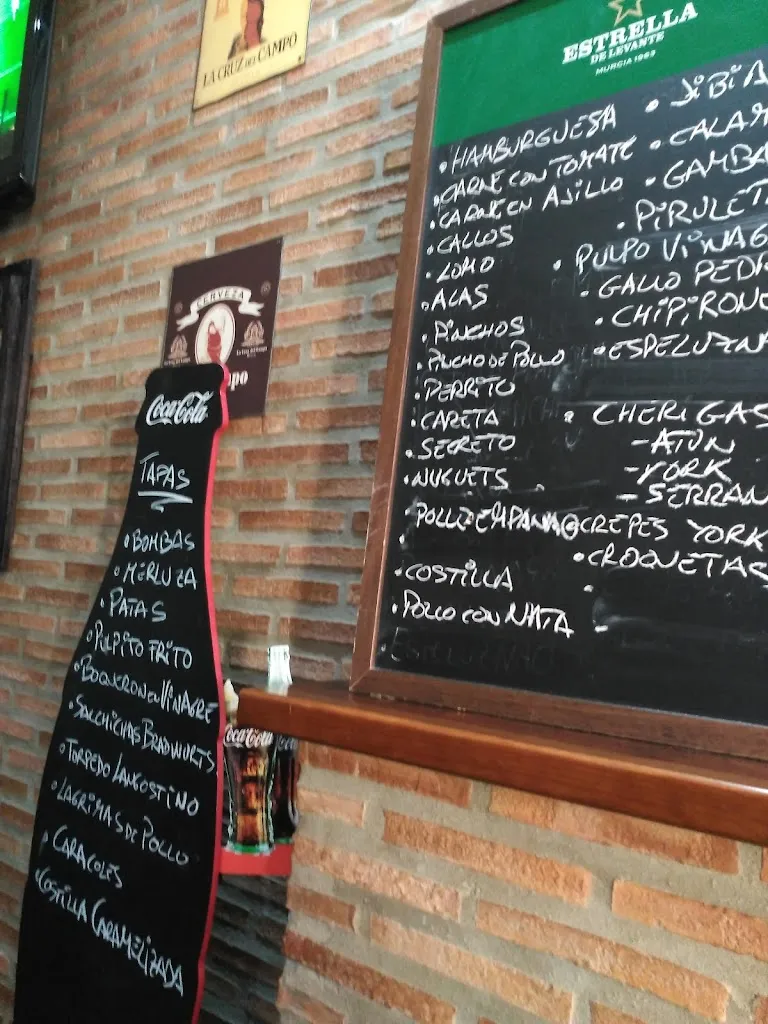 LA CRUZ DEL CAMPO
CERVEZA
Coca-Cola
TAPAS
• BOMBAS
• MERLUZA
• PATAS
• PULPITO FRITO
• BOQUERON EN VINAGRE
• SALCHICHAS BRADWURTS
• TORPEDO LANGOSTINO
• LAGRIMAS DE POLLO
• CARACOLES
• COSTILLA CARAMELIZADA
Coca-Cola
ESTRELLA
DE LEVANTE
MURCIA 1963
• HAMBURGUESA
• CARNE CON TOMATE
• CARNE EN AJILLO
• CALLOS
• LOMO
• ALAS
• PINCHOS
• PINCHO DE POLLO
• PERRITO
• CARETA
• SECRETO
• NUGUETS
• COSTILLA
• POLLO CON NATA
• JIBIA
• CALAM
• GAMBA
• PIRULET
• PULPO VINAG
• GALLO PED
• CHIPIRON
• CHERIGAS
- ATUN
- YORK
- SERRAN
CREPES YORK
• CROQUETAS